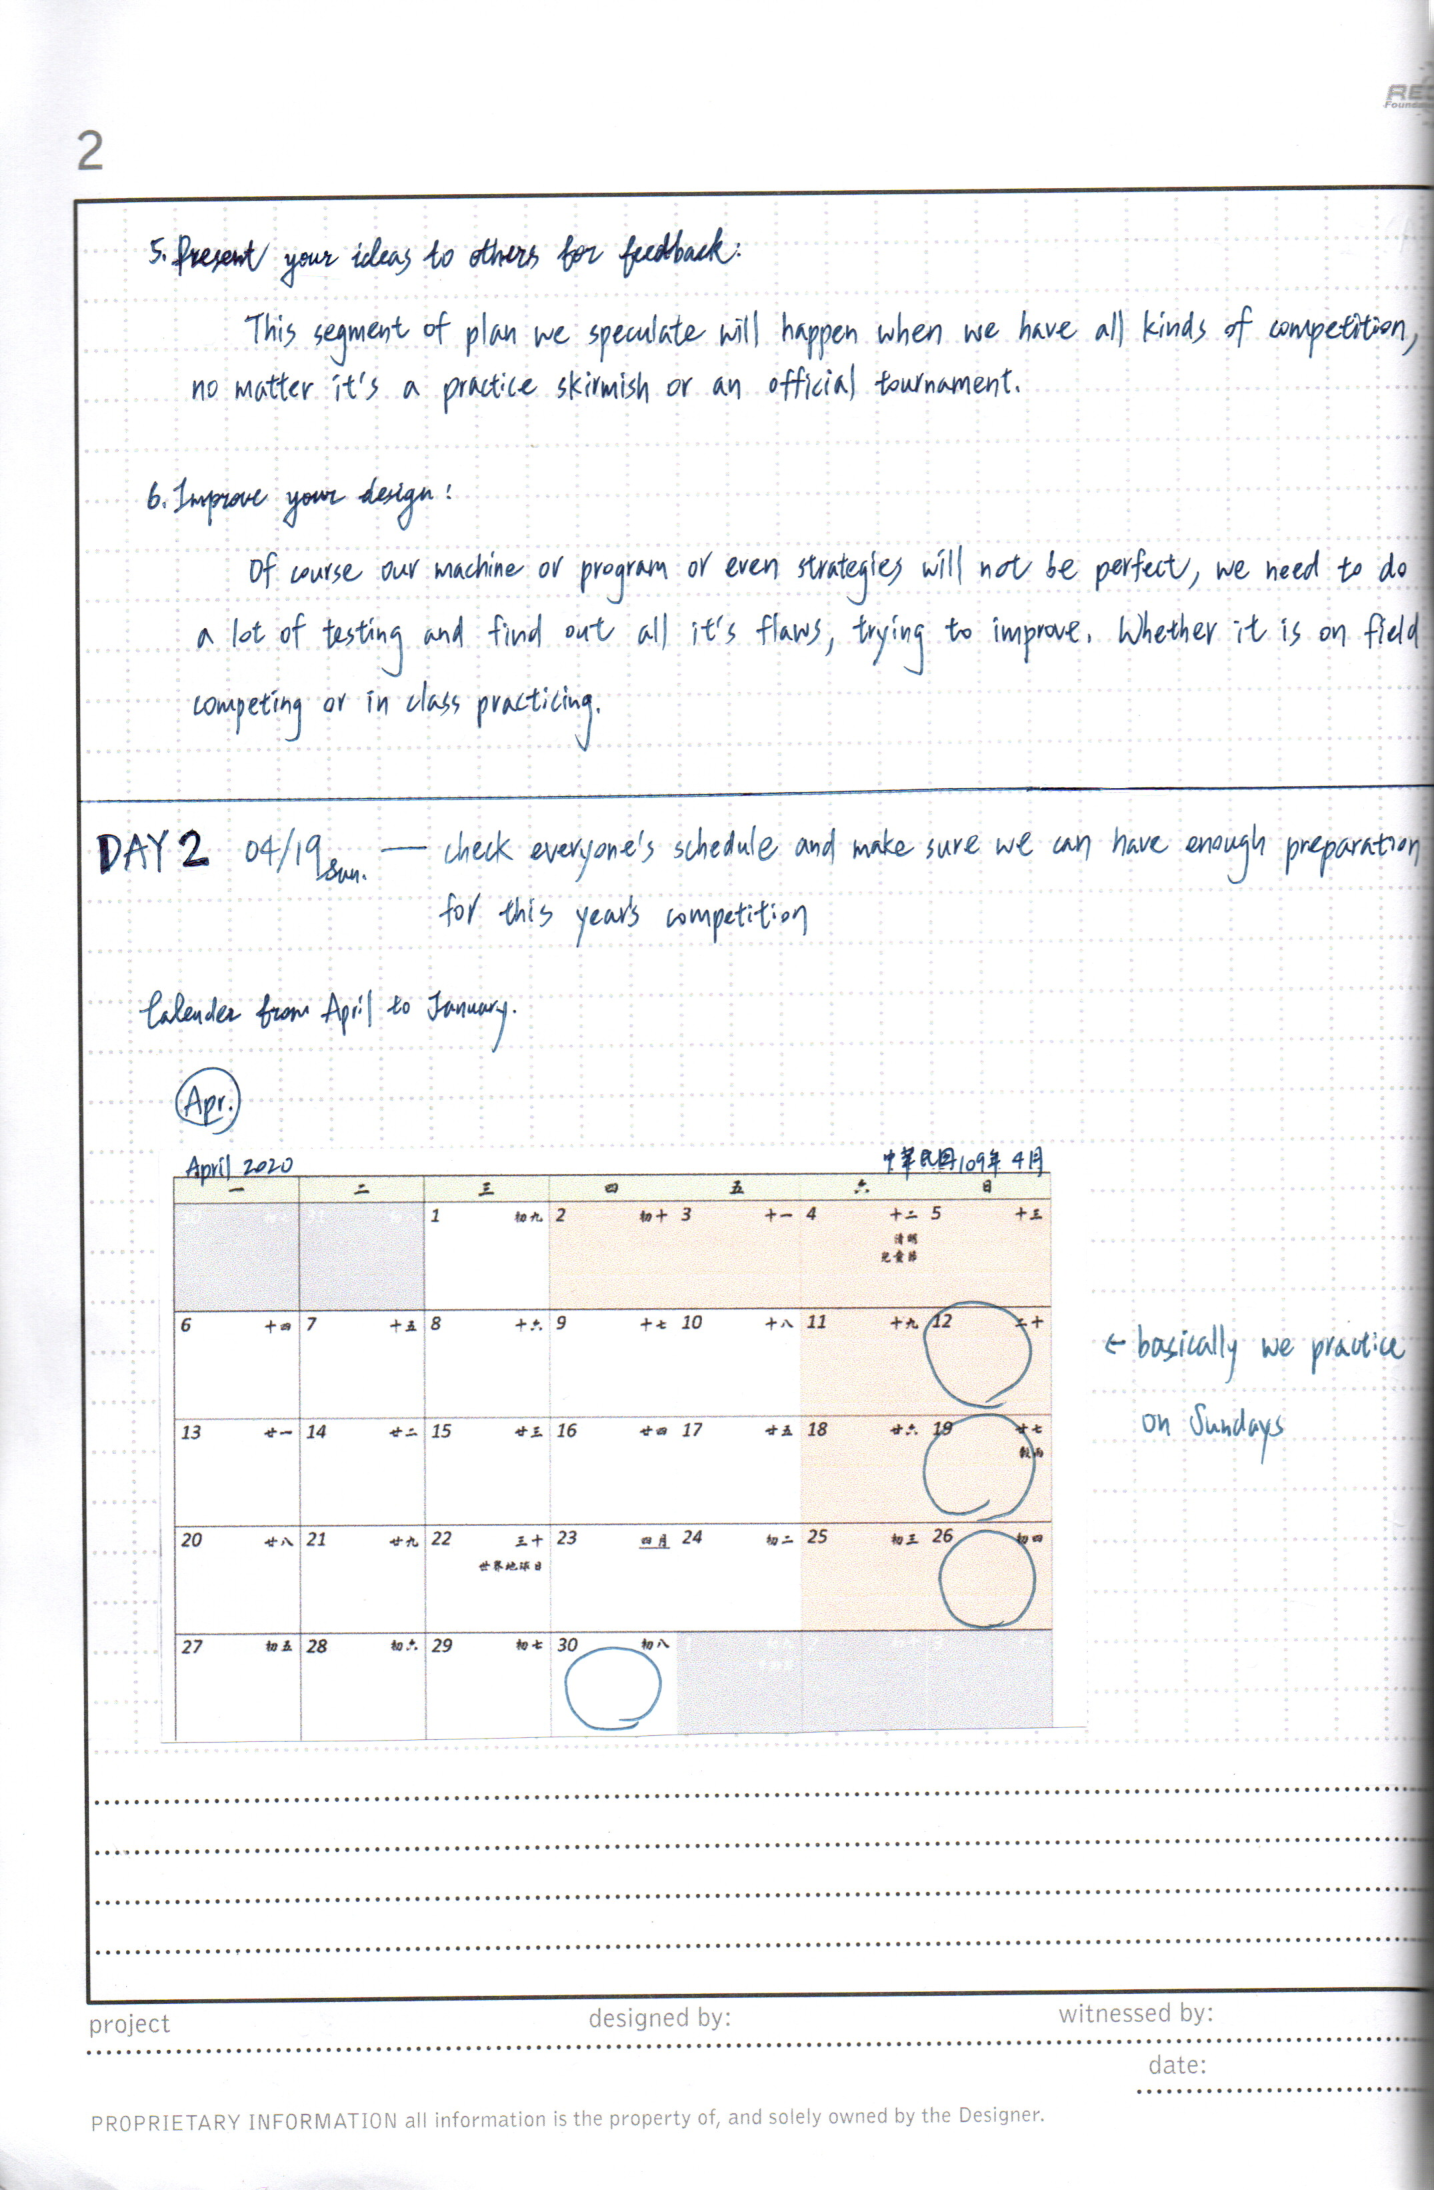 2
5. Present your ideas to others for feedback:
This segment of plan we speculate will happen when we have all kinds of competition,
no matter it's a practice skirmish or an official tournament.
6. Improve your design:
Of course our machine or program or even strategies will not be perfect, we need to do
a lot of testing and find out all it's flaws, trying to improve. Whether it is on field
competing or in class practicing.
DAY 2 04/19 Sun. — check everyone's schedule and make sure we can have enough preparation
for this year's competition
Calender from April to January.
Apr.
April 2020 中華民国109年 4月
一 二 三 四 五 六 日
1 初九 2 初十 3 十一 4 十二 5 十三
清明
兒童節
6 十四 7 十五 8 十六 9 十七 10 十八 11 十九 12 二十
← basically we practice
on Sundays
13 廿一 14 廿二 15 廿三 16 廿四 17 廿五 18 廿六 19 廿七
穀雨
20 廿八 21 廿九 22 三十 23 四月 24 初二 25 初三 26 初四
世界地球日
27 初五 28 初六 29 初七 30 初八
project designed by: witnessed by:
date:
PROPRIETARY INFORMATION all information is the property of, and solely owned by the Designer.